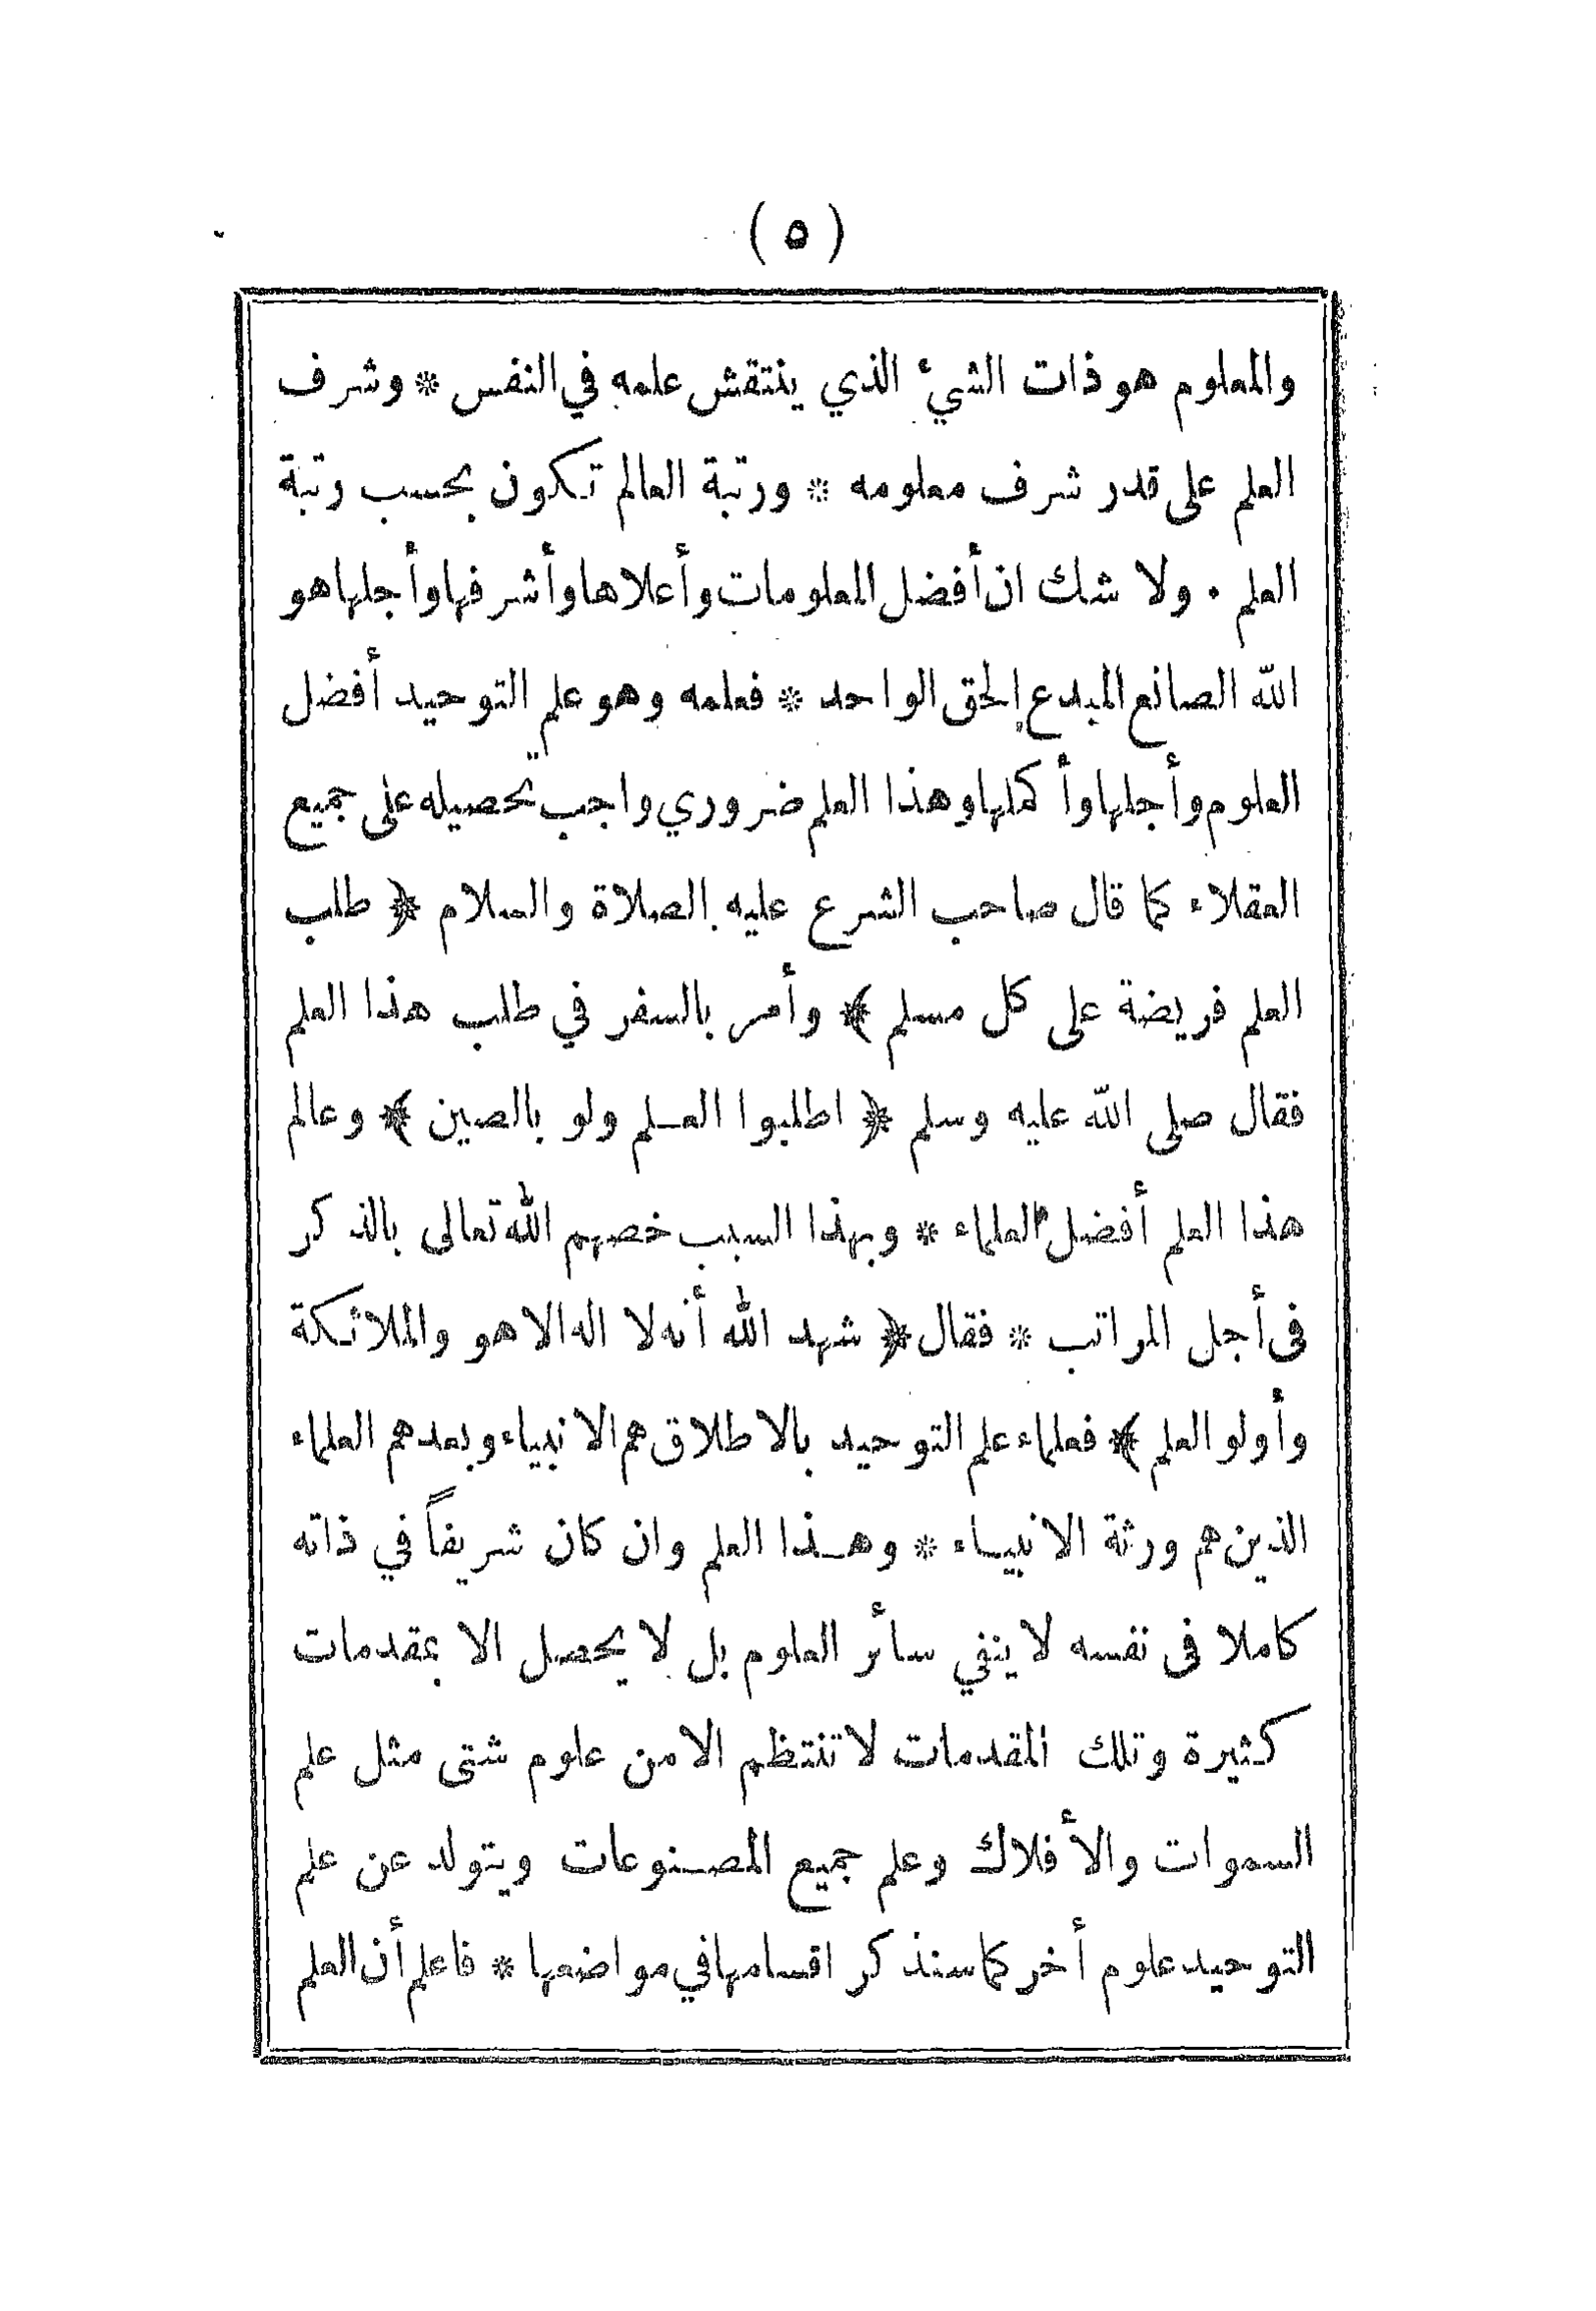 ( ٥ )
والمعلوم هو ذات الشيئ الذي ينتقش علمه في النفس * وشرف
العلم على قدر شرف معلومه * ورتبة العالم تكون بحسب رتبة
العلم . ولا شك ان أفضل المعلومات وأعلاها وأشرفها وأجلها هو
الله الصانع المبدع الحق الواحد * فعلمه وهو علم التوحيد أفضل
العلوم وأجلها وأكملها وهذا العلم ضروري واجب تحصيله على جميع
العقلاء كما قال صاحب الشرع عليه الصلاة والسلام ﴿ طلب
العلم فريضة على كل مسلم ﴾ وأمر بالسفر في طلب هذا العلم
فقال صلى الله عليه وسلم ﴿ اطلبوا العلم ولو بالصين ﴾ وعالم
هذا العلم أفضل العلماء * وبهذا السبب خصهم الله تعالى بالذكر
فى أجل المراتب * فقال ﴿ شهد الله أنه لا اله الا هو والملائكة
وأولو العلم ﴾ فعلماء علم التوحيد بالاطلاق هم الانبياء وبعدهم العلماء
الذين هم ورثة الانبياء * وهذا العلم وان كان شريفاً في ذاته
كاملا فى نفسه لا ينفي سأئر العلوم بل لا يحصل الا بمقدمات
كثيرة وتلك المقدمات لا تنتظم الا من علوم شتى مثل علم
السموات والأفلاك وعلم جميع المصنوعات ويتولد عن علم
التوحيد علوم أخر كما سنذكر اقسامها في مواضعها * فاعلم أن العلم